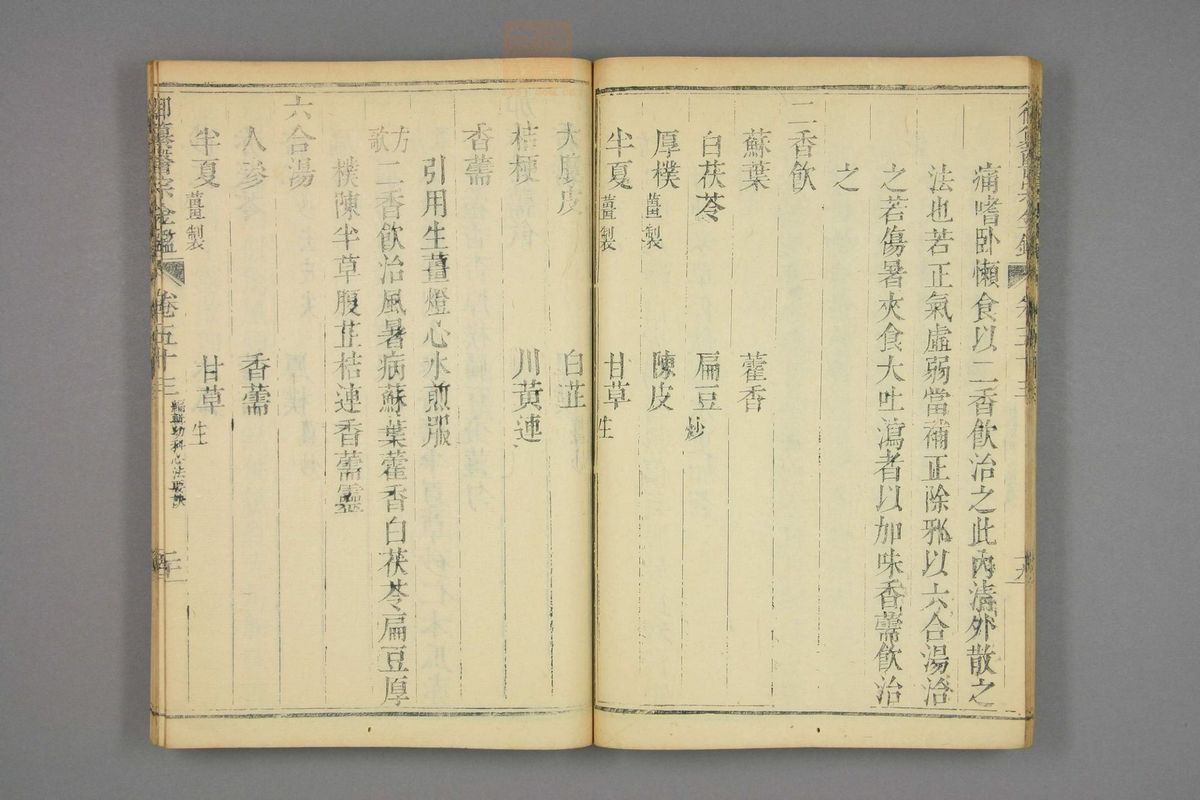 痛嗜卧懶食以二香飲治之此內清外散之
法也若正氣虛弱當補正除邪以六合湯治
之若傷暑夾食大吐瀉者以加味香薷飲治
之
二香飲
蘇葉 藿香
白茯苓 扁豆炒
厚樸薑製 陳皮
半夏薑製 甘草生
大腹皮 白芷
桔梗 川黃連
香薷
引用生薑燈心水煎服
方歌 二香飲治風暑病蘇葉藿香白茯苓扁豆厚
樸陳半草腹芷桔連香薷靈
六合湯
人參 香薷
半夏薑製 甘草生
御纂醫宗金鑑 卷五十三 編輯幼科心法要訣 二十